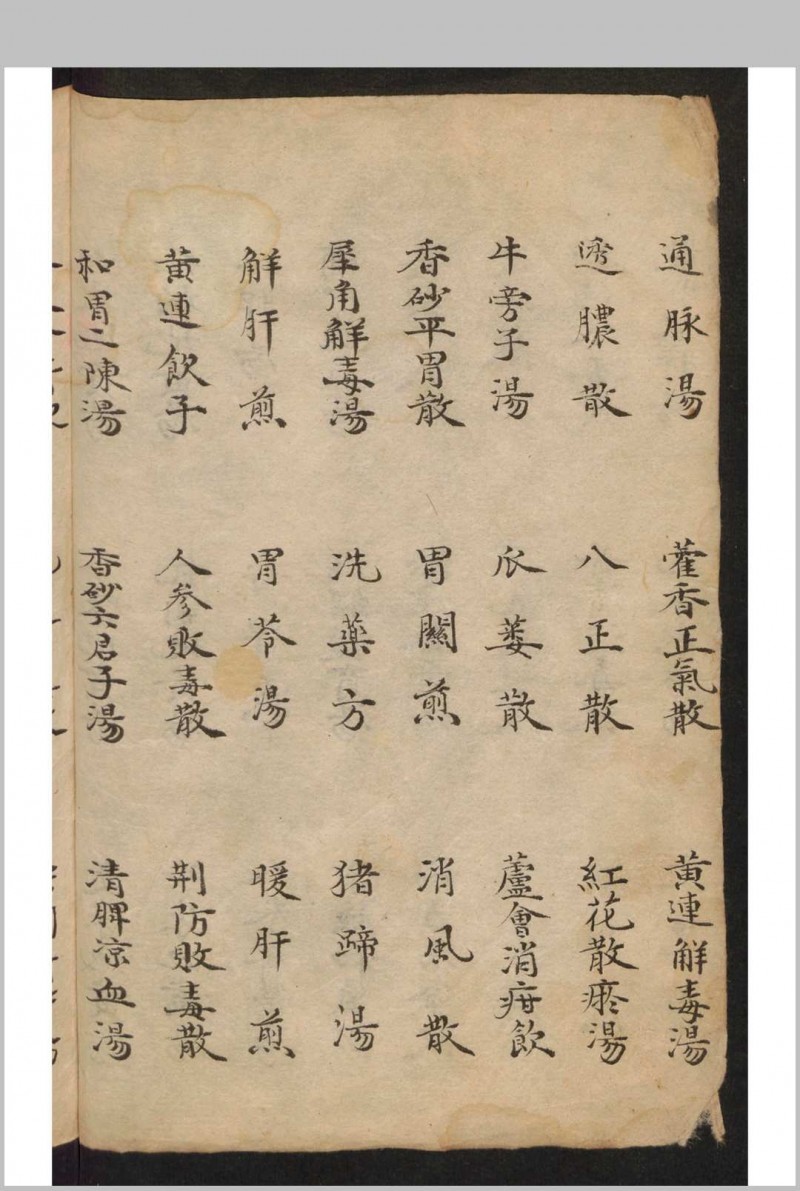 通脉湯 藿香正氣散 黃連解毒湯
透膿散 八正散 紅花散瘀湯
牛旁子湯 瓜蔞散 蘆會消疳飲
香砂平胃散 胃關煎 消風散
犀角解毒湯 洗藥方 猪蹄湯
解肝煎 胃苓湯 暖肝煎
黃連飲子 人參敗毒散 荆防敗毒散
和胃二陳湯 香砂六君子湯 清脾凉血湯